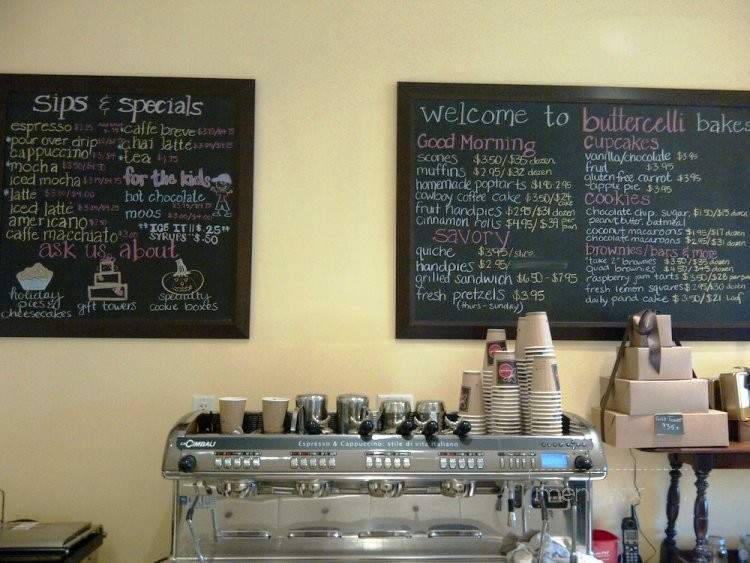 sips & specials
espresso
pour over drip
cappuccino
mocha
iced mocha
latte
iced latte
americano
caffe macchiato
caffe breve
chai latte
tea
for the kids
hot chocolate
moos
**ICE IT!! $.25**
SYRUPS $.50
ask us about
holiday
pies &
cheesecakes
gift towers
specialty
cookie boxes
welcome to buttercelli bakes
Good Morning
scones $3.50/$35 dozen
muffins $2.95/$32 dozen
homemade poptarts
cowboy coffee cake $3.50/$24
fruit handpies $2.95/$31 dozen
cinnamon rolls $4.95/$39
savory
quiche $3.95/slice
handpies $2.95
grilled sandwich $6.50 - $7.95
fresh pretzels $3.95
(thurs - sunday)
cupcakes
vanilla/chocolate $3.95
fruit $3.95
gluten free carrot $3.95
apple pie $3.95
cookies
chocolate chip, sugar, $1.50/$15 dozen
peanut butter, oatmeal
coconut macaroons $1.95/$17 dozen
chocolate macaroons $2.95/$31 dozen
brownies/bars & more
"take 2" brownies $3.50/$35 dozen
quad brownies $4.50/$45 dozen
raspberry jam tarts $3.50/$28
fresh lemon squares $2.95/$30 dozen
daily pand cake $3.50/$21 loaf
LACIMBALI
Espresso & Cappuccino: stile di vita italiano